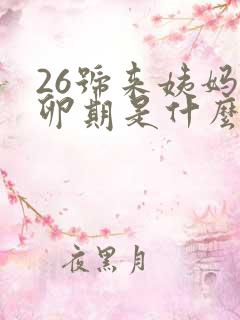 26號来姨妈
卵期是什麼
夜黑月